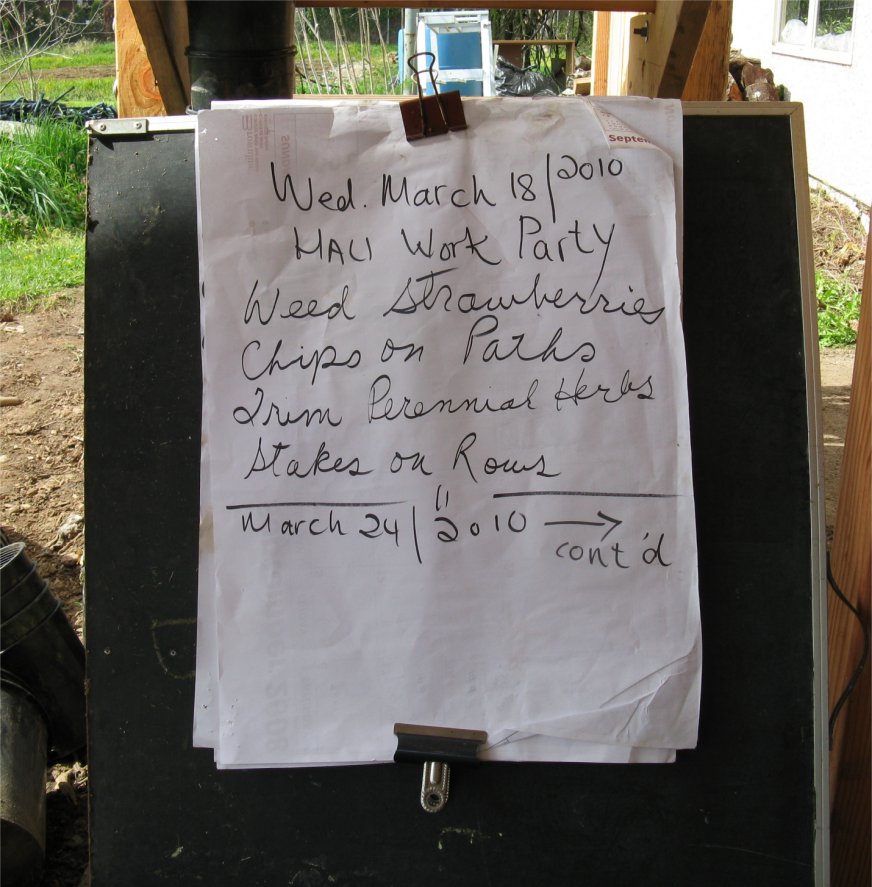 Septem
Wed. March 18/2010
HAU Work Party
Weed Strawberries
Chips on Paths
Trim Perennial Herbs
Stakes on Rows
"
March 24/2010 →
cont'd